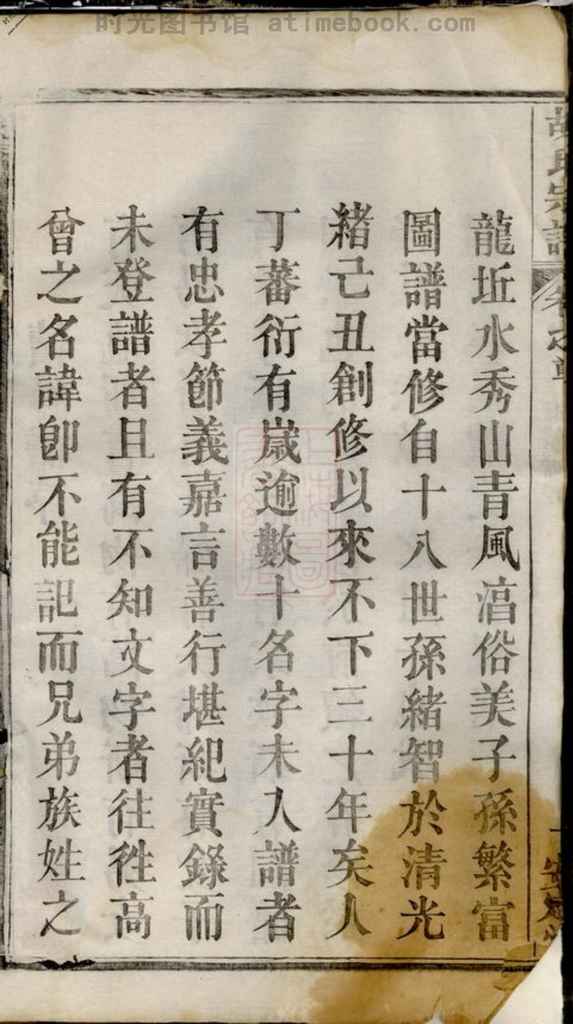 时光图书馆 atimebook.com
胡氏宗譜 卷之首
龍坵水秀山青風湻俗美子孫繁富
圖譜當修自十八世孫緒智於清光
緒己丑創修以來不下三十年矣人
丁蕃衍有歲逾數十名字未入譜者
有忠孝節義嘉言善行堪紀實錄而
未登譜者且有不知文字者往徃高
曾之名諱卽不能記而兄弟族姓之